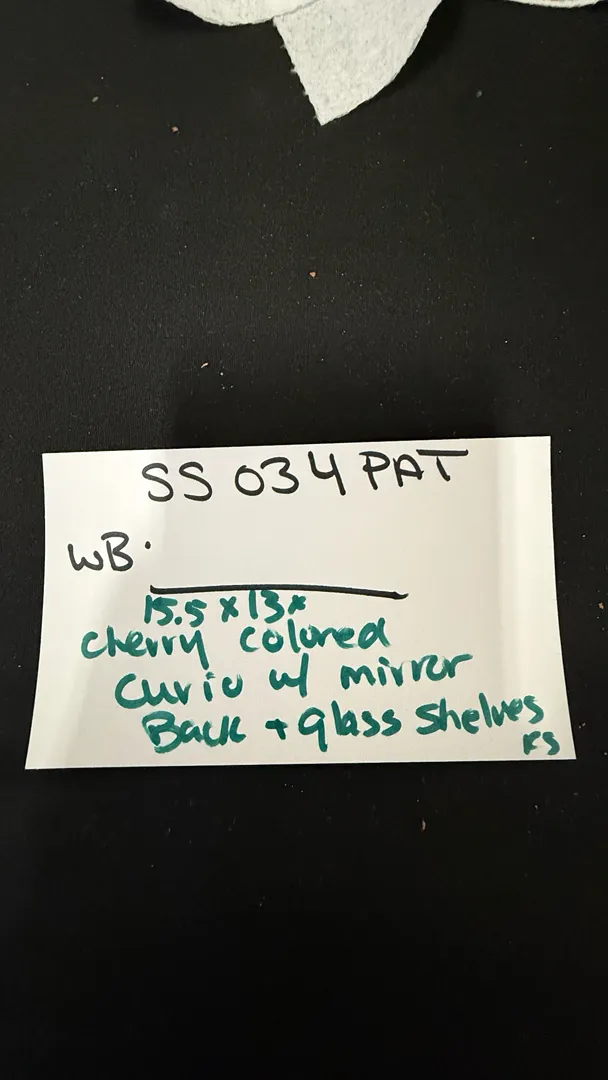 SS 034 PAT
WB.
15.5 x 13 x
cherry colored
curio w/ mirror
Back + glass shelves
KS